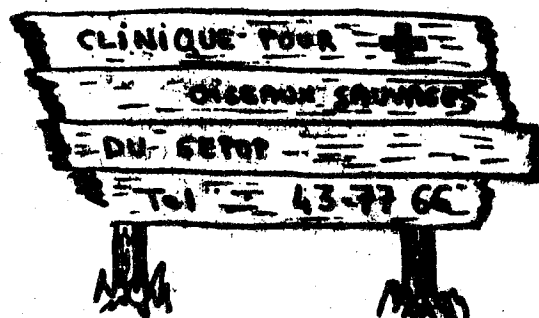 CLiNiQUE POUR
OiSEAUX SAUVAGES
DU GEPOP
Tel 43-77 66